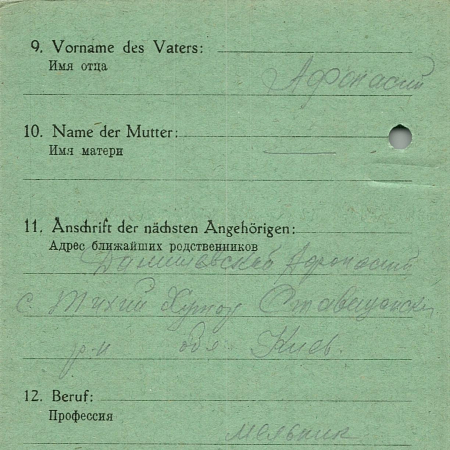 9. Vorname des Vaters:
Имя отца
Афонасий
10. Name der Mutter:
Имя матери
11. Anschrift der nächsten Angehörigen:
Адрес ближайших родственников
Афонасий
с Тихий Хутор
р-н обл Киев.
12. Beruf:
Профессия
мельник